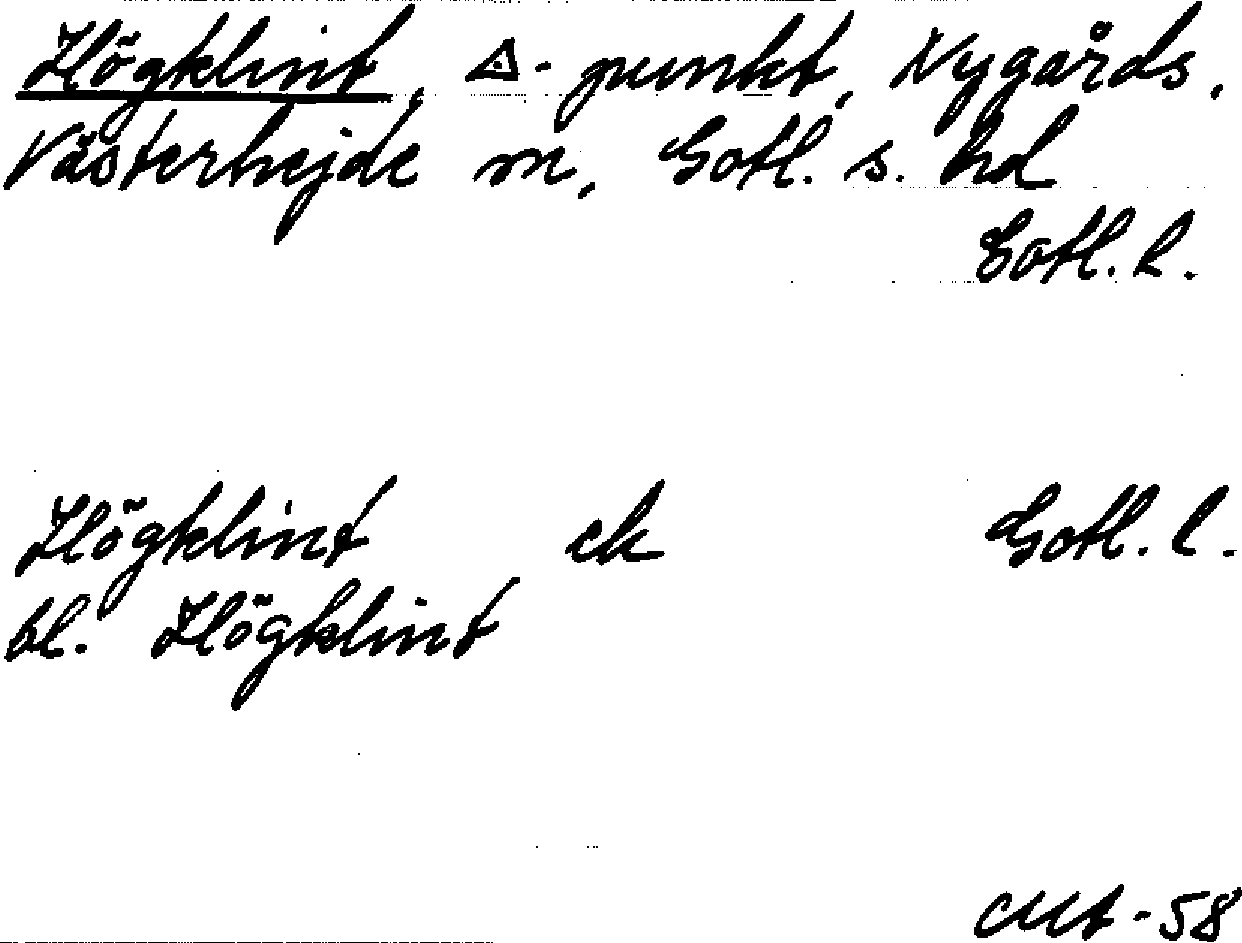 Högklint, △-punkt, Nygårds,
Västerhejde sn, Gotl. s. hd
Gotl. l.
Högklint ek Gotl. l.
bl. Högklint
CMt-58